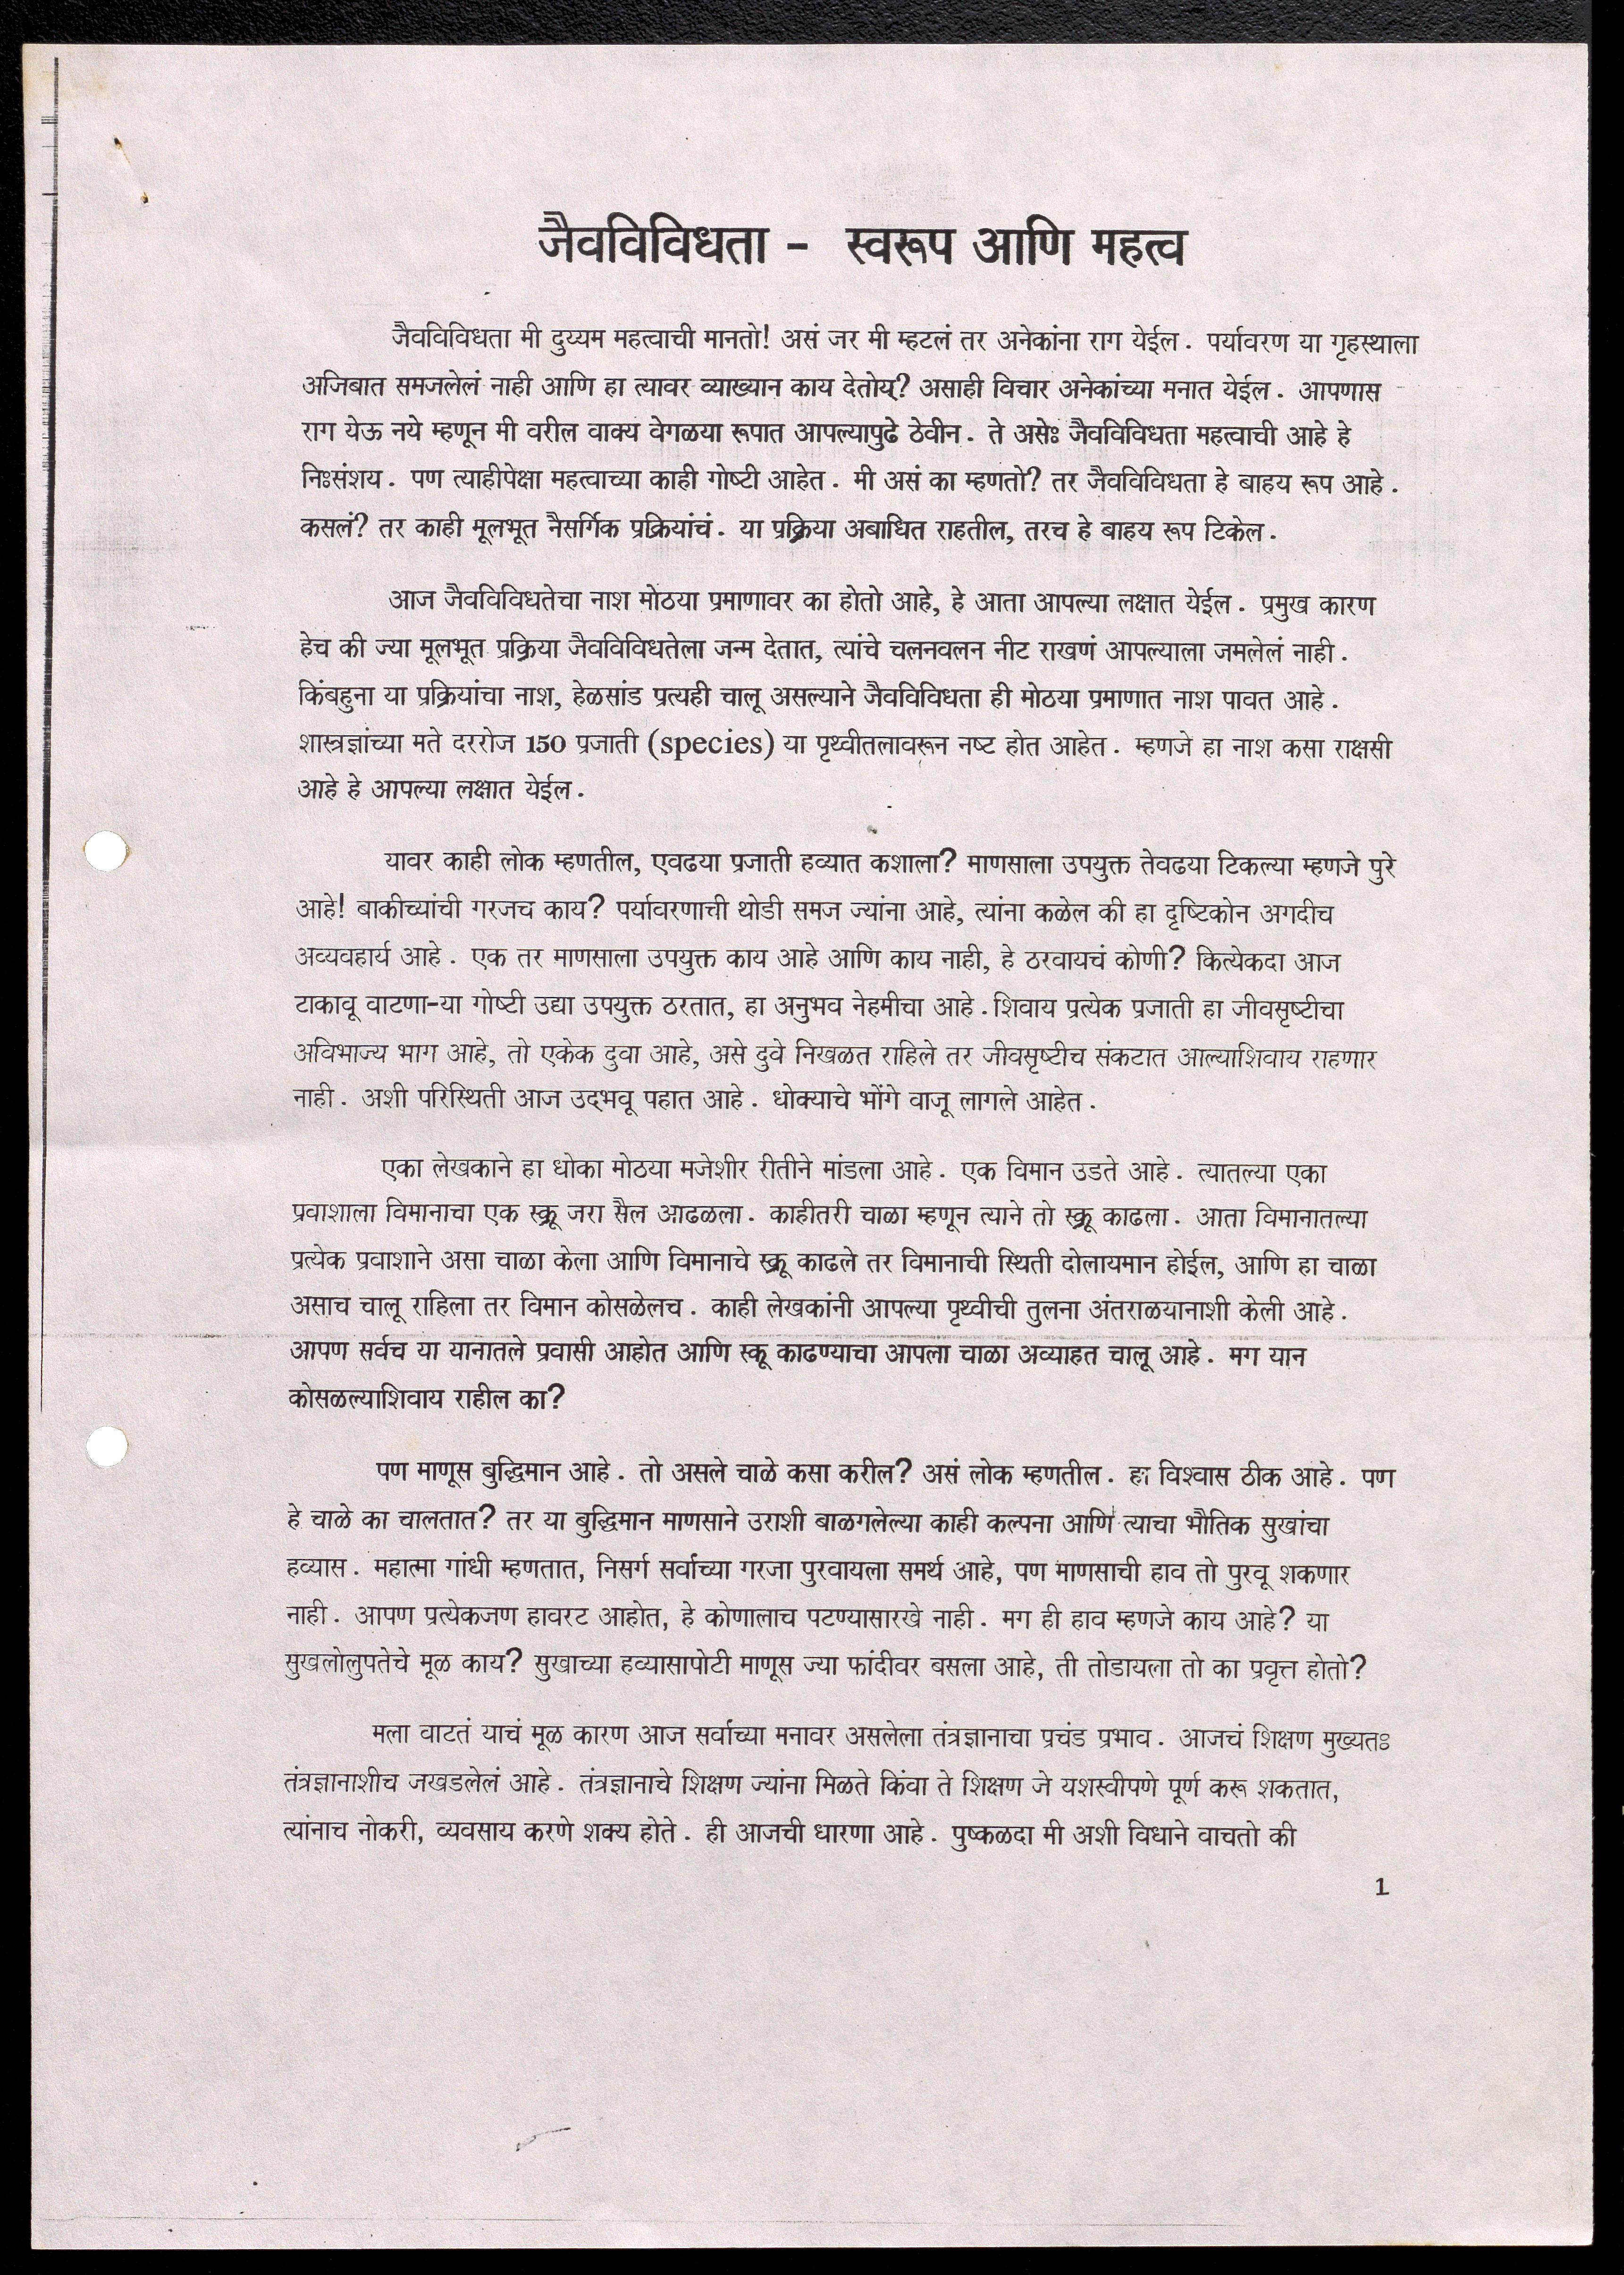 जैवविविधता - स्वरूप आणि महत्व
जैवविविधता मी दुय्यम महत्वाची मानतो! असं जर मी म्हटलं तर अनेकांना राग येईल. पर्यावरण या गृहस्थाला
अजिबात समजलेलं नाही आणि हा त्यावर व्याख्यान काय देतोय्? असाही विचार अनेकांच्या मनात येईल. आपणास
राग येऊ नये म्हणून मी वरील वाक्य वेगळया रूपात आपल्यापुढे ठेवीन. ते असेः जैवविविधता महत्वाची आहे हे
निःसंशय. पण त्याहीपेक्षा महत्वाच्या काही गोष्टी आहेत. मी असं का म्हणतो? तर जैवविविधता हे बाहय रूप आहे.
कसलं? तर काही मूलभूत नैसर्गिक प्रक्रियांचं. या प्रक्रिया अबाधित राहतील, तरच हे बाहय रूप टिकेल.
आज जैवविविधतेचा नाश मोठया प्रमाणावर का होतो आहे, हे आता आपल्या लक्षात येईल. प्रमुख कारण
हेच की ज्या मूलभूत प्रक्रिया जैवविविधतेला जन्म देतात, त्यांचे चलनवलन नीट राखणं आपल्याला जमलेलं नाही.
किंबहुना या प्रक्रियांचा नाश, हेळसांड प्रत्यही चालू असल्याने जैवविविधता ही मोठया प्रमाणात नाश पावत आहे.
शास्त्रज्ञांच्या मते दररोज 150 प्रजाती (species) या पृथ्वीतलावरून नष्ट होत आहेत. म्हणजे हा नाश कसा राक्षसी
आहे हे आपल्या लक्षात येईल.
यावर काही लोक म्हणतील, एवढया प्रजाती हव्यात कशाला? माणसाला उपयुक्त तेवढया टिकल्या म्हणजे पुरे
आहे! बाकीच्यांची गरजच काय? पर्यावरणाची थोडी समज ज्यांना आहे, त्यांना कळेल की हा दृष्टिकोन अगदीच
अव्यवहार्य आहे. एक तर माणसाला उपयुक्त काय आहे आणि काय नाही, हे ठरवायचं कोणी? कित्येकदा आज
टाकावू वाटणा-या गोष्टी उद्या उपयुक्त ठरतात, हा अनुभव नेहमीचा आहे. शिवाय प्रत्येक प्रजाती हा जीवसृष्टीचा
अविभाज्य भाग आहे, तो एकेक दुवा आहे, असे दुवे निखळत राहिले तर जीवसृष्टीच संकटात आल्याशिवाय राहणार
नाही. अशी परिस्थिती आज उदभवू पहात आहे. धोक्याचे भोंगे वाजू लागले आहेत.
एका लेखकाने हा धोका मोठया मजेशीर रीतीने मांडला आहे. एक विमान उडते आहे. त्यातल्या एका
प्रवाशाला विमानाचा एक स्क्रू जरा सैल आढळला. काहीतरी चाळा म्हणून त्याने तो स्क्रू काढला. आता विमानातल्या
प्रत्येक प्रवाशाने असा चाळा केला आणि विमानाचे स्क्रू काढले तर विमानाची स्थिती दोलायमान होईल, आणि हा चाळा
असाच चालू राहिला तर विमान कोसळेलच. काही लेखकांनी आपल्या पृथ्वीची तुलना अंतराळयानाशी केली आहे.
आपण सर्वच या यानातले प्रवासी आहोत आणि स्क्रू काढण्याचा आपला चाळा अव्याहत चालू आहे. मग यान
कोसळल्याशिवाय राहील का?
पण माणूस बुद्धिमान आहे. तो असले चाळे कसा करील? असं लोक म्हणतील. हा विश्वास ठीक आहे. पण
हे चाळे का चालतात? तर या बुद्धिमान माणसाने उराशी बाळगलेल्या काही कल्पना आणि त्याचा भौतिक सुखांचा
हव्यास. महात्मा गांधी म्हणतात, निसर्ग सर्वांच्या गरजा पुरवायला समर्थ आहे, पण माणसाची हाव तो पुरवू शकणार
नाही. आपण प्रत्येकजण हावरट आहोत, हे कोणालाच पटण्यासारखे नाही. मग ही हाव म्हणजे काय आहे? या
सुखलोलुपतेचे मूळ काय? सुखाच्या हव्यासापोटी माणूस ज्या फांदीवर बसला आहे, ती तोडायला तो का प्रवृत्त होतो?
मला वाटतं याचं मूळ कारण आज सर्वांच्या मनावर असलेला तंत्रज्ञानाचा प्रचंड प्रभाव. आजचं शिक्षण मुख्यतः
तंत्रज्ञानाशीच जखडलेलं आहे. तंत्रज्ञानाचे शिक्षण ज्यांना मिळते किंवा ते शिक्षण जे यशस्वीपणे पूर्ण करू शकतात,
त्यांनाच नोकरी, व्यवसाय करणे शक्य होते. ही आजची धारणा आहे. पुष्कळदा मी अशी विधाने वाचतो की
1